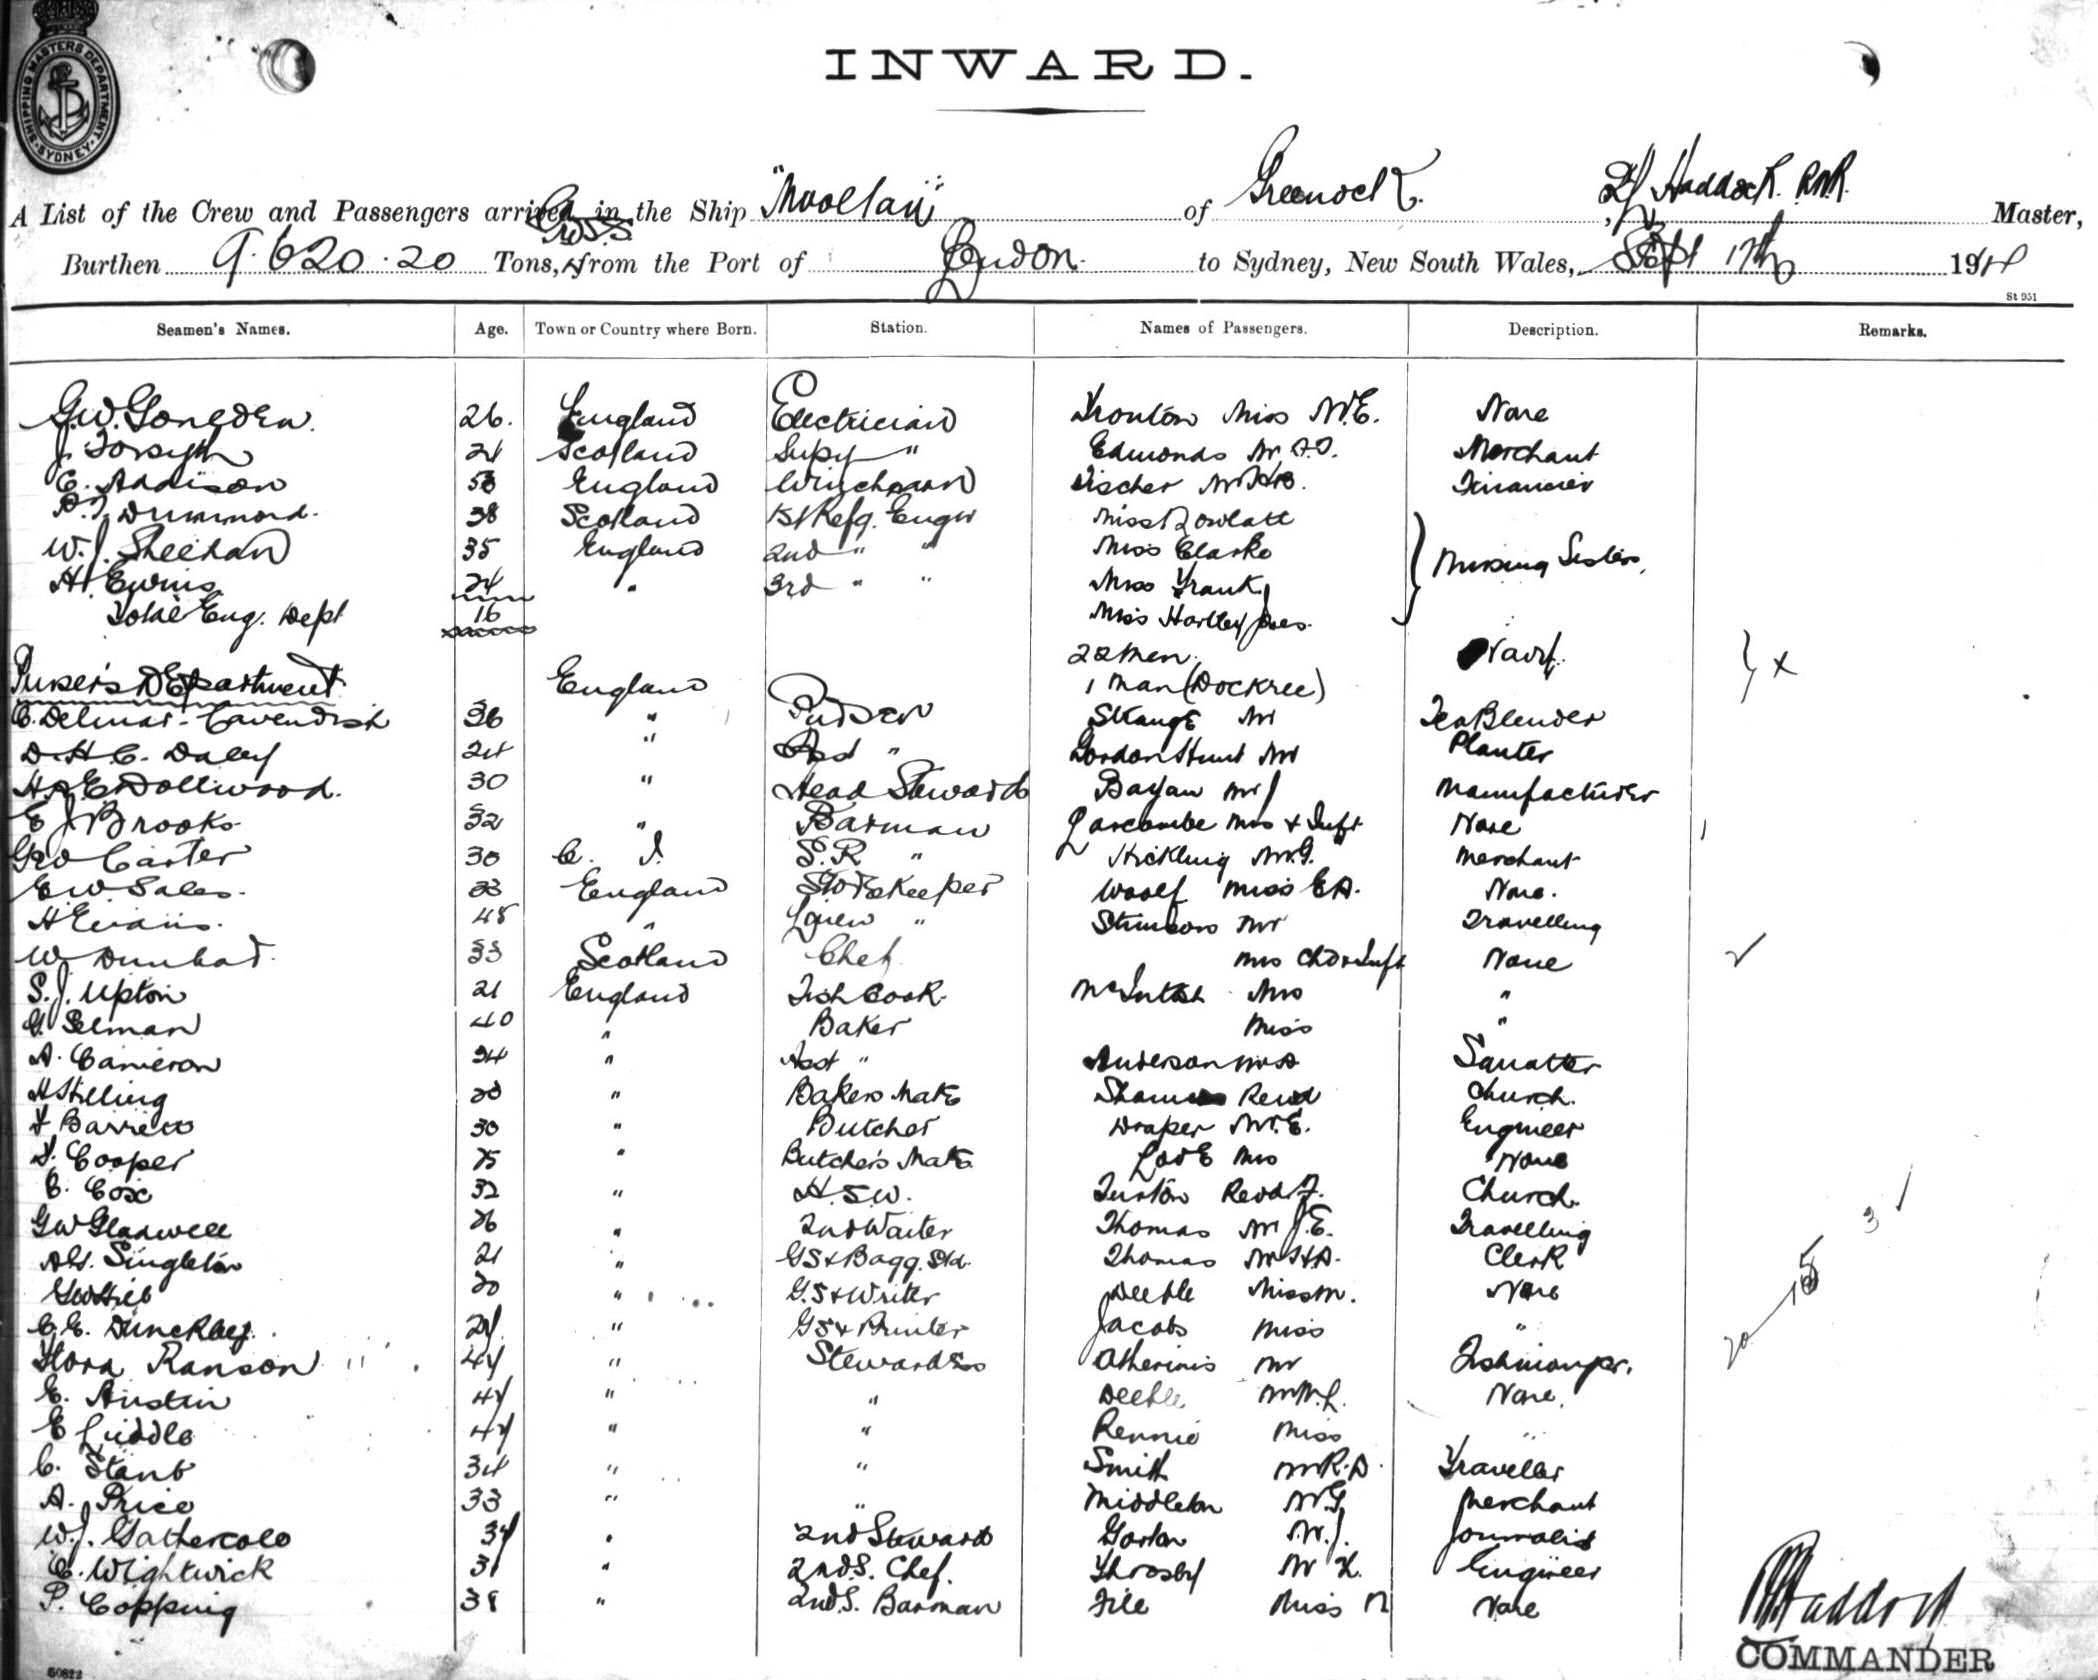 SHIPPING MASTERS DEPARTMENT SYDNEY
INWARD.
A List of the Crew and Passengers arrived in the Ship "Mooltan" of Greenock Haddock. RNR. Master,
Burthen 9.620.20 Tons, from the Port of London to Sydney, New South Wales, Sept 17th 191
St 951
Seamen's Names. Age. Town or Country where Born. Station. Names of Passengers. Description. Remarks.
G.W. 26. England Electrician Miss None
J. Forsyth 24 Scotland Supy " Edmonds Mr Merchant
C. Addison England Winchman Fischer Mr Financier
Drummond. 38 Scotland 1st Refg. Engr Miss Rowlatt
W.J. Sheehan 35 England 2nd " " Miss Clarke Nursing Sisters
H. 24 " 3rd " " Miss Frank
Total Eng. Dept 16 Miss Hartley Jones
22 Men Navy
Purser's Department England 1 Man (Dockree) x
C. Delmar-Cavendish 36 " Purser Strange Mr Tea Blender
D.H.C. Daley 24 " Asst " Gordon Hunt Mr Planter
Dolliwood. 30 " Head Steward Mr J Manufacturer
E J Brooks 32 " Barman Larcombe Mrs & Inft None
Geo Carter 30 C. I. S.R " Hickling Mr G. Merchant
E W Sales. England Storekeeper Woolf Miss EA. None.
H Evans. 48 " Linen " Mr Travelling
W Dunbar. 33 Scotland Chef Mrs Chd & Inft None
S.J. Upton 21 England Fish Cook McIntosh Mrs "
G. Selman 40 " Baker Miss "
A. Cameron 34 " Asst " Anderson Squatter
H Stilling " Bakers Mate Revd Church.
F Barrett 30 " Butcher Draper Mr. E. Engineer
Cooper 25 " Butcher's Mate Love Mrs None
C. Cox 32 " H.S.W. Turton Revd F. Church.
GW Gladwell 26 " 2nd Waiter Thomas Mr J.E. Travelling
Singleton 21 " GS & Bagg. Std. Thomas Mr H.A. Clerk
20 " G.S & Writer Deeble Miss M. None
C.E. Dunckley. 24 " GS & Printer Jacobs Miss "
Flora Ranson 44 " Stewardess Mr Fishmonger.
E. Austin 44 " " Deeble Mr None.
E Liddle 44 " " Rennie Miss "
C. 34 " " Smith Mr R.D. Traveller
A. Price 33 " " Middleton Mr G. Merchant
W.J. Gathercole 34 " 2nd Steward Mr J. Journalist
C. Wightwick 31 " 2nd S. Chef. Throsby Mr Engineer
P. Copping 38 " 2nd S. Barman File Miss N None
Haddock
COMMANDER
50822